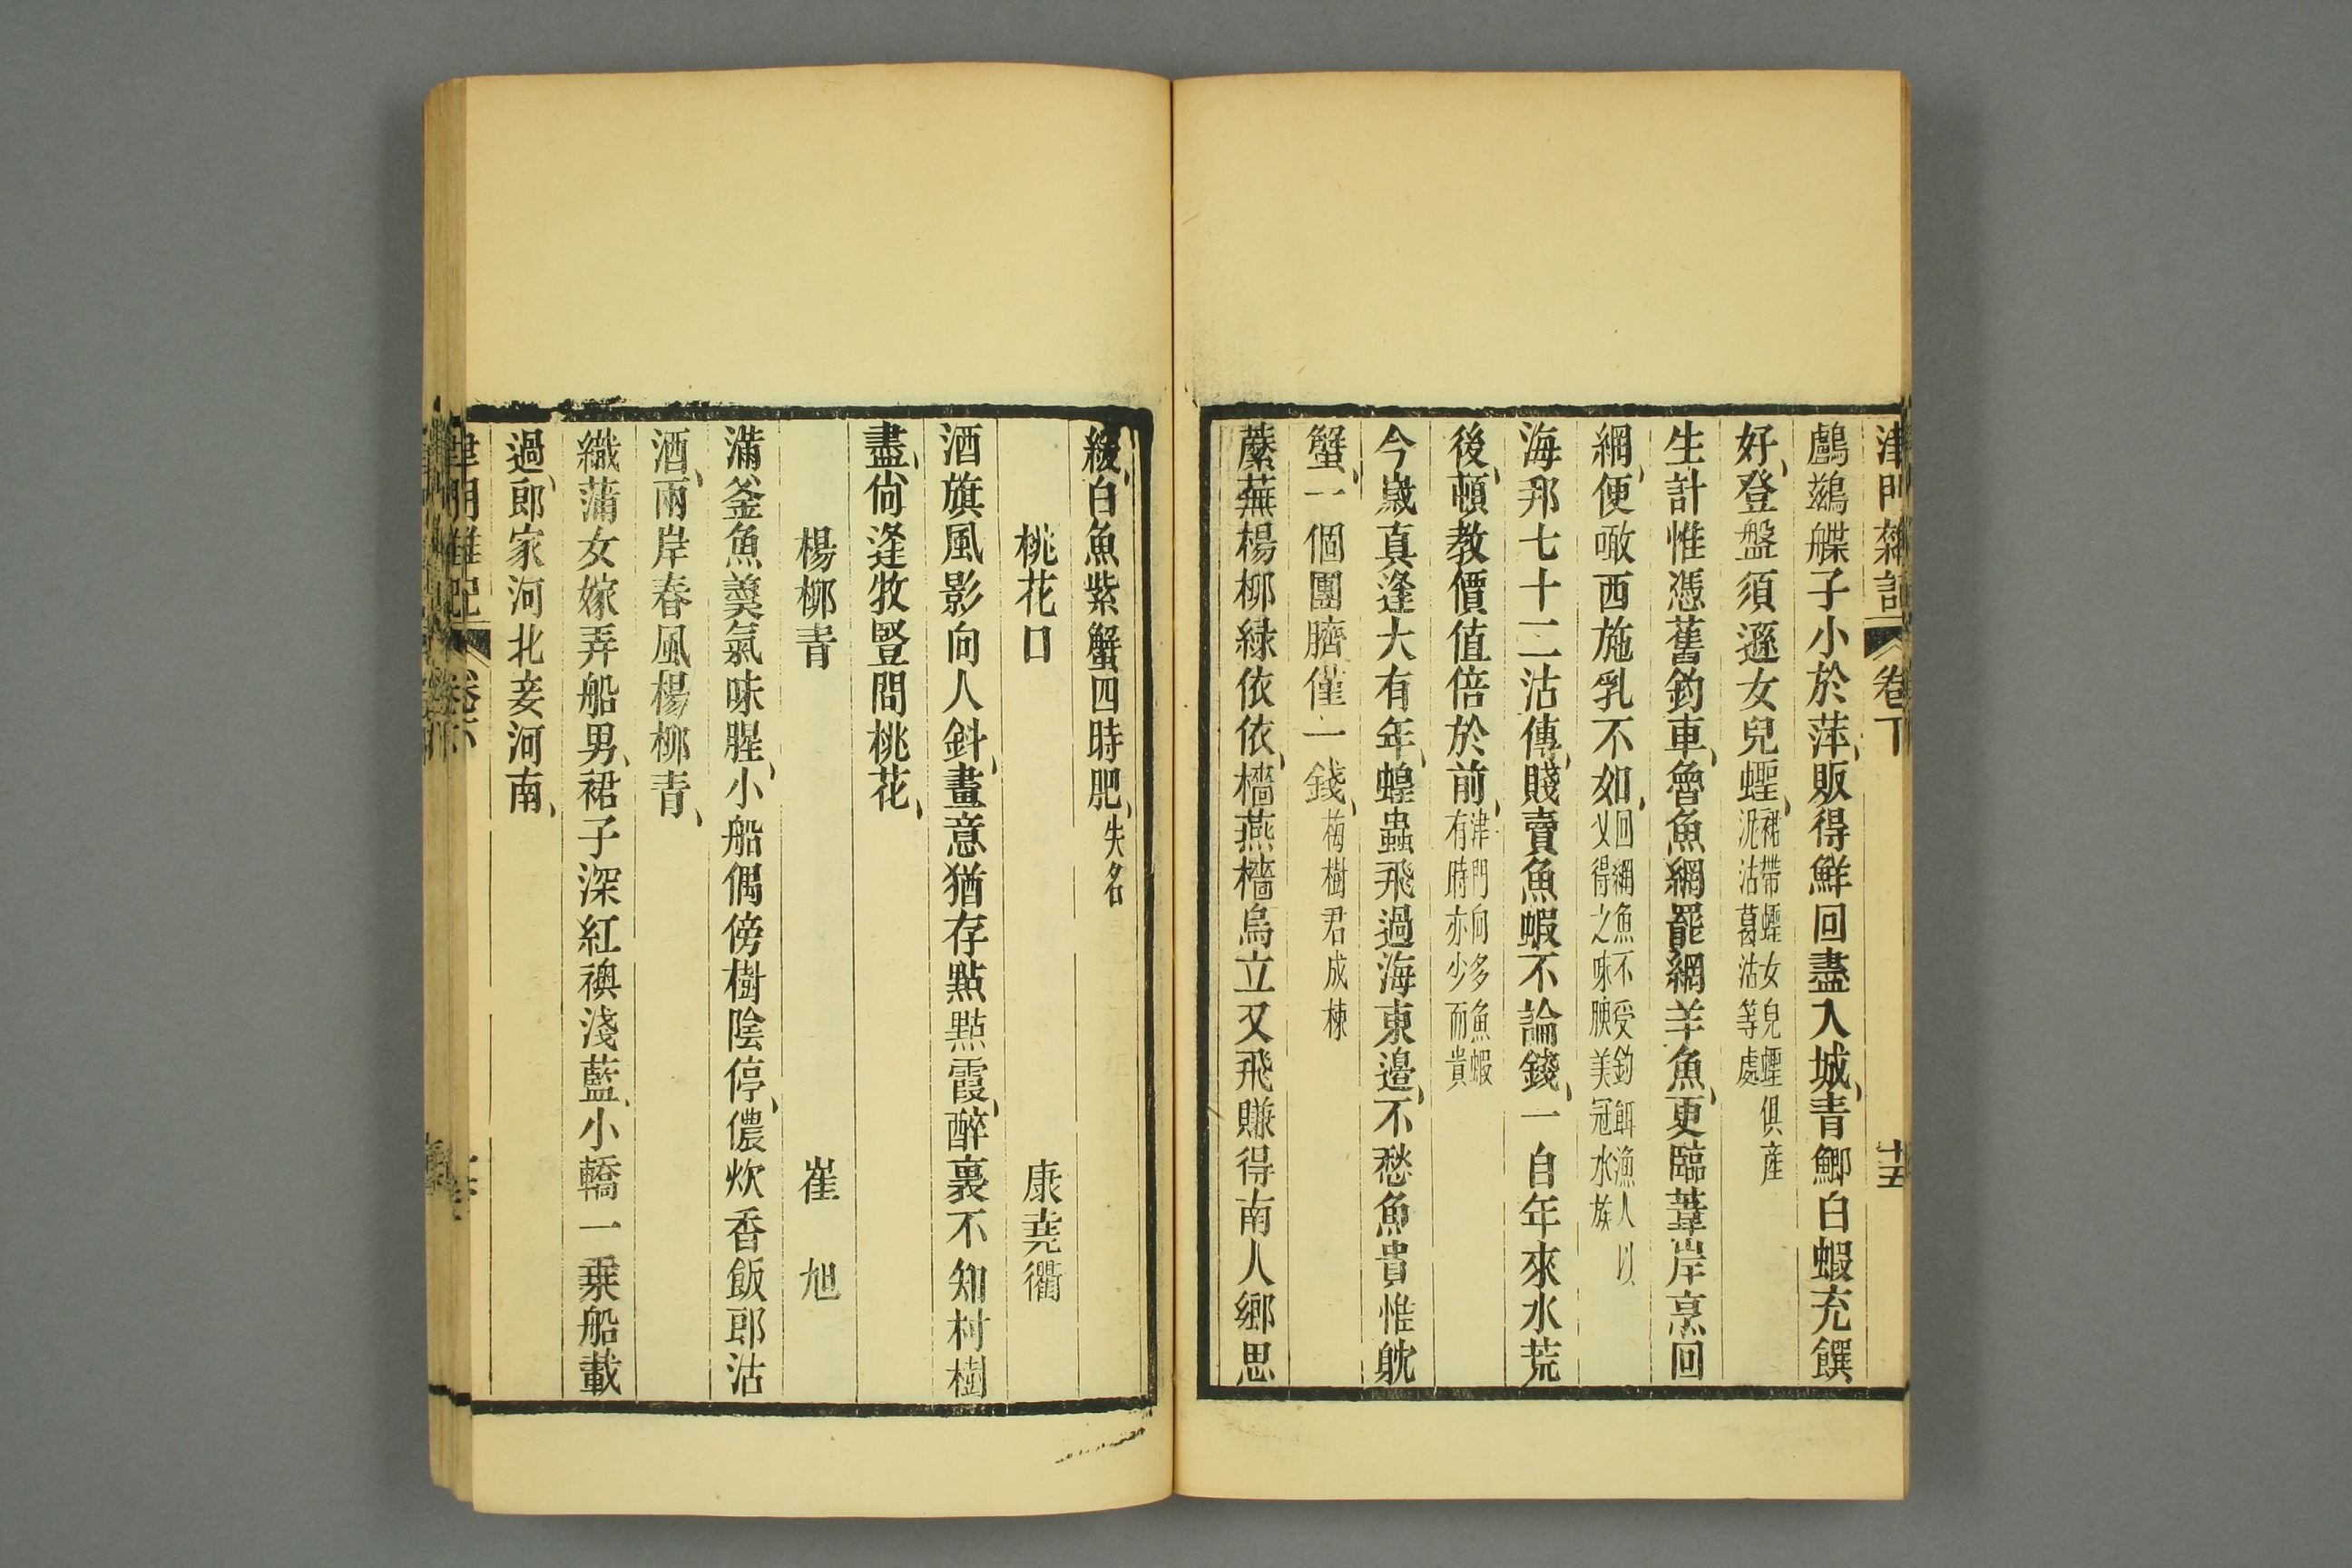 津門雜記 卷下 十五
鸕鷀艓子小於萍、販得鮮回盡入城、青鯽白蝦充饌
好、登盤須遜女兒蟶、裙帶蟶女兒蟶俱產
泥沽葛沽等處
生計惟憑舊釣車、魯魚網罷網羊魚、更臨葦岸烹回
網、便噉西施乳不如、回網魚不受釣餌漁人以
乂得之味腴美冠水族
海邦七十二沽傳、賤賣魚蝦不論錢、一自年來水荒
後、頓教價值倍於前、津門向多魚蝦
有時亦少而貴
今歲真逢大有年、蝗蟲飛過海東邊、不愁魚貴惟躭
蟹、一個團臍僅一錢、梅樹君成棟
蘼蕪楊柳綠依依、檣燕檣烏立又飛賺得南人鄉思
緩、白魚紫蟹四時肥、失名
桃花口 康堯衢
酒旗風影向人斜、畫意猶存點點霞、醉裏不知村樹
盡、尙逢牧豎問桃花、
楊柳青 崔旭
滿釜魚羹氣味腥、小船偶傍樹陰停、儂炊香飯郎沽
酒、兩岸春風楊柳青、
織蒲女嫁弄船男、裙子深紅襖淺藍、小轎一乘船載
過、郎家河北妾河南、
津門雜記 卷下